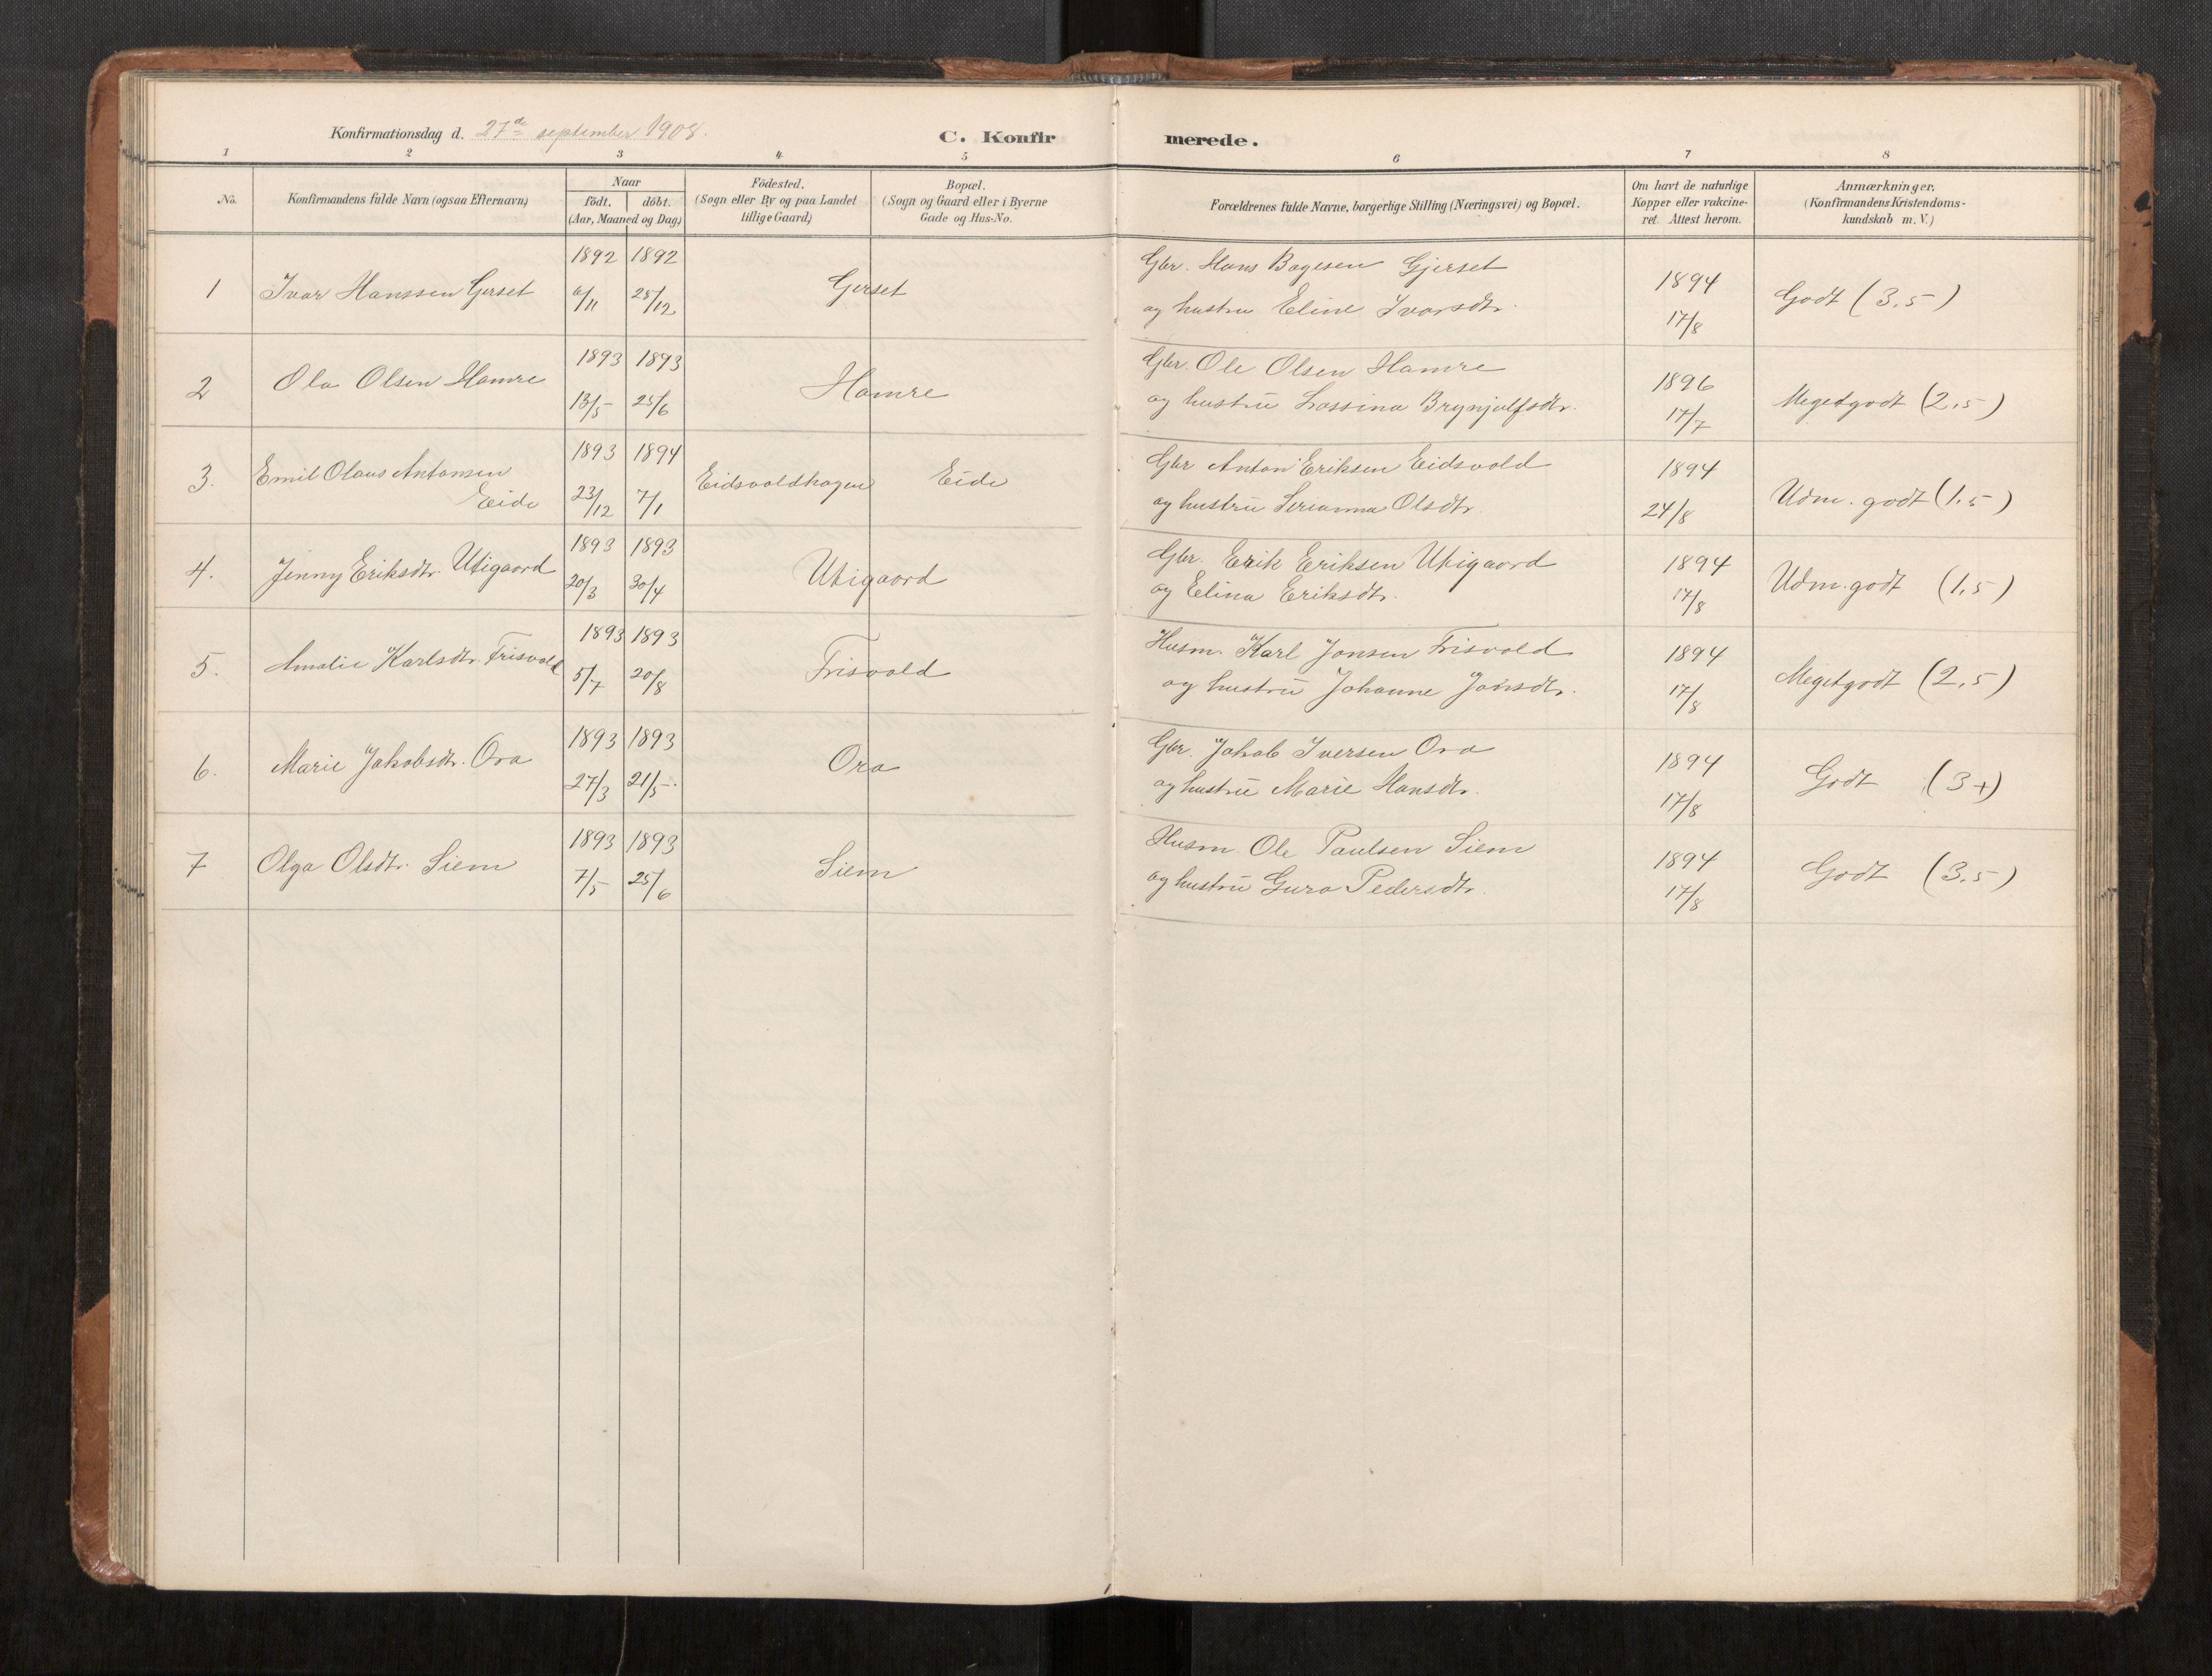 Konfirmationsdag d. 27de september 1908.
C. Konfirmerede.
1 2 3 4 5 6 7 8
No.
Konfirmandens fulde Navn (ogsaa Efternavn)
Naar
födt. döbt.
(Aar, Maaned og Dag)
Födested.
(Sogn eller By og paa Landet
tillige Gaard)
Bopæl.
(Sogn og Gaard eller i Byerne
Gade og Hus-No.
Forældrenes fulde Navne, borgerlige Stilling (Næringsvei) og Bopæl.
Om havt de naturlige
Kopper eller vakcine-
ret. Attest herom.
Anmærkninger.
(Konfirmandens Kristendoms-
kundskab m. V.)
1892 1892 Gbr. Hans Bagesen Gjerset 1894
1 Ivar Hanssen Gerset 6/11 25/12 Gerset og hustru Eline Ivarsdtr. 17/8 Godt (3,5)
1893 1893 Gbr. Ole Olsen Hamre 1896
2 Ola Olsen Hamre 13/5 25/6 Hamre og hustru Lassina Brynjulfsdtr. 17/7 Megetgodt (2,5)
3. Emil Olaus Antonsen 1893 1894 Eidsvoldshagen Eide Gbr Anton Eriksen Eidsvold 1894
Eide 23/12 7/1 og hustru Serianna Olsdtr. 24/8 Udm. godt (1,5)
1893 1893 Gbr. Erik Eriksen Utigaard 1894
4. Jenny Eriksdtr. Utigaard 20/3 30/4 Utigaard og Elina Eriksdtr. 17/8 Udm. godt (1,5)
1893 1893 Husm. Karl Jonsen Frisvold 1894
5. Amalie Karlsdtr. Frisvold 5/7 20/8 Frisvold og hustru Johanne Jonsdtr. 17/8 Megetgodt (2,5)
1893 1893 Gbr. Jakob Iversen Ora 1894
6. Marie Jakobsdtr. Ora 27/3 21/5 Ora og hustru Marie Hansdtr. 17/8 Godt (3+)
1893 1893 Husm. Ole Paulsen Siem 1894
7 Olga Olsdtr. Siem 7/5 25/6 Siem og hustru Guro Pedersdtr. 17/8 Godt (3,5)